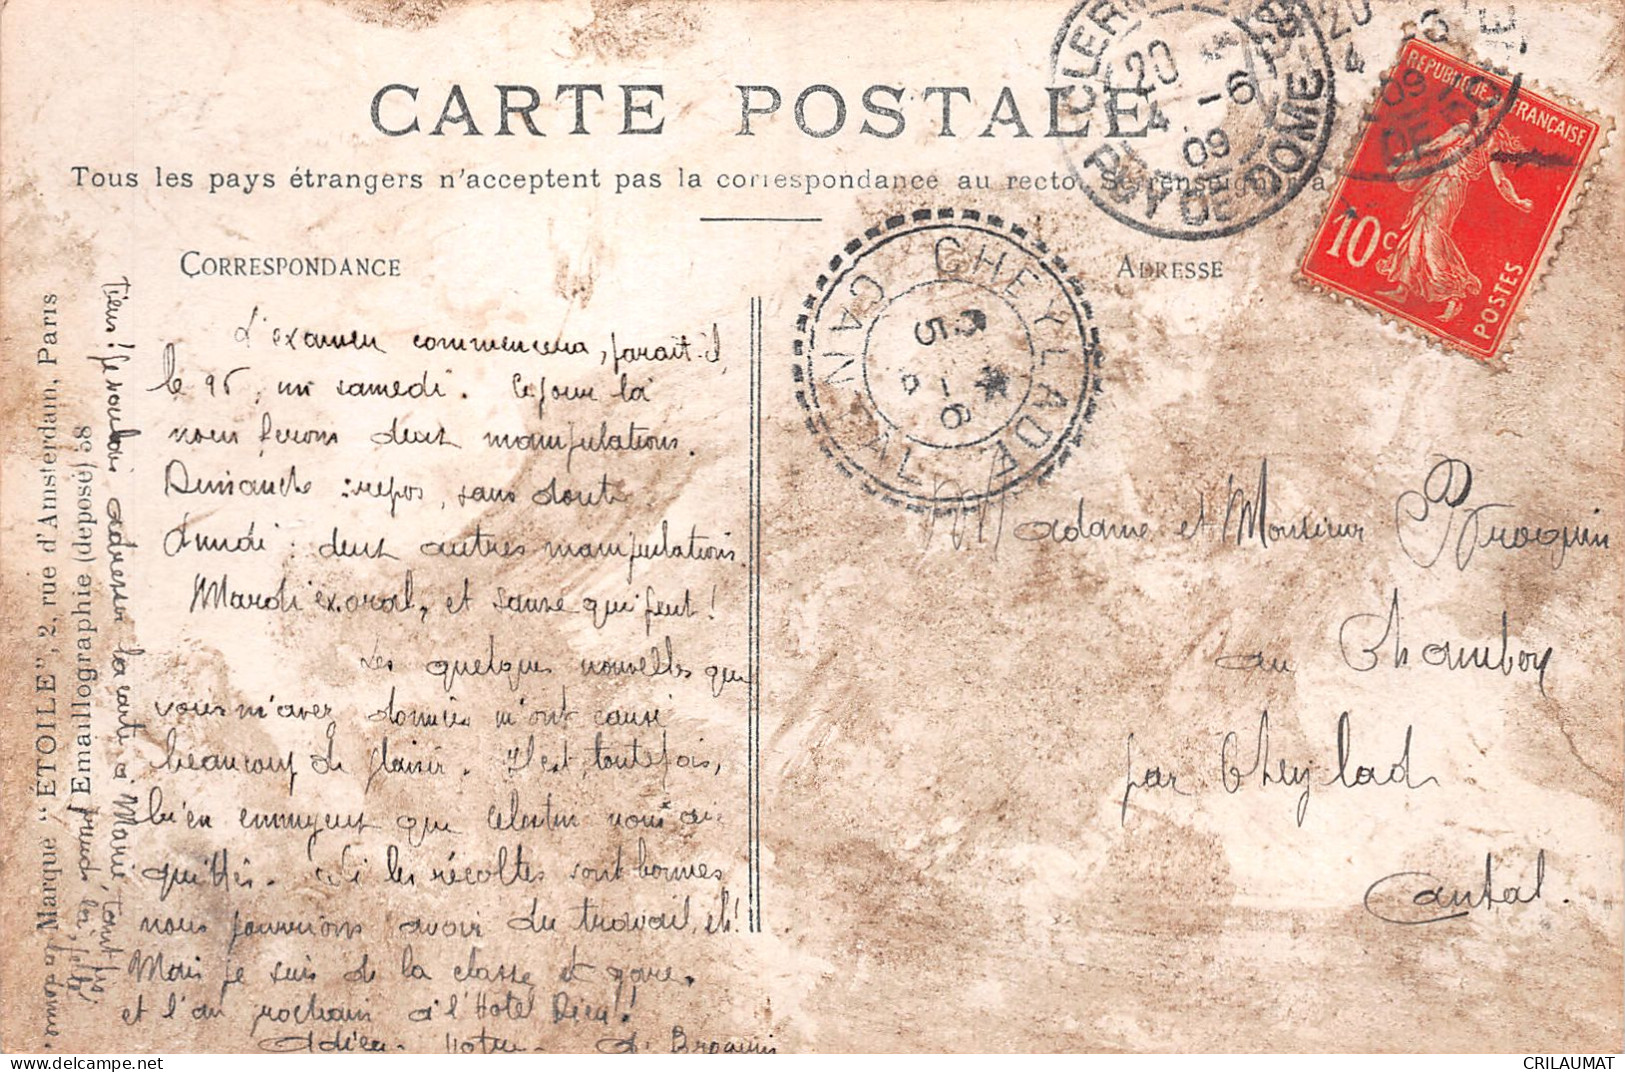 CARTE POSTALE
Tous les pays étrangers n'acceptent pas la correspondance au recto. Se renseigner à
CORRESPONDANCE
ADRESSE
CLERM
PUY DE DOME
20
4 -6
09
20
4 -6
09
DE DOME
REPUBLIQUE FRANÇAISE
10c
POSTES
CHEYLADE
CANTAL
5 -6
L'examen commencera, parait-il,
le 26, un samedi. Ce jour là
nous ferons deux manipulations.
Dimanche : repos, sans doute
Lundi : deux autres manipulations.
Mardi ex. oral, et sauve qui peut!
Les quelques nouvelles que
vous m'avez données m'ont causé
beaucoup de plaisir. Il est, toutefois,
bien ennuyeux que Celestin nous ai
quittés. Si les récoltes sont bonnes
nous pourrions avoir du travail, eh!
Mais je suis de la classe et gare.
et l'an prochain à l'Hotel Dieu!
Adieu. Votre
Madame et Monsieur
au Chambon
par Cheylade
Cantal.
Tiens! Je voulais adresser la carte à Marie, tant pis!
Marque "ÉTOILE", 2, rue d'Amsterdam, Paris
Emaillographie (déposé)
CRILAUMAT